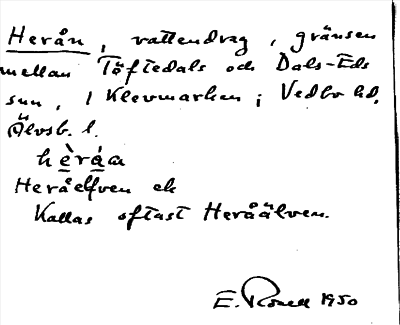 Herån, vattendrag, gränsen
mellan Töftedals och Dals-Eds
snn, i Klevmarken i Vedbo hd,
Älvsb. l.
hèráa
Heråelfven ek
Kallas oftast Heråälven.
E. Rosell 1950